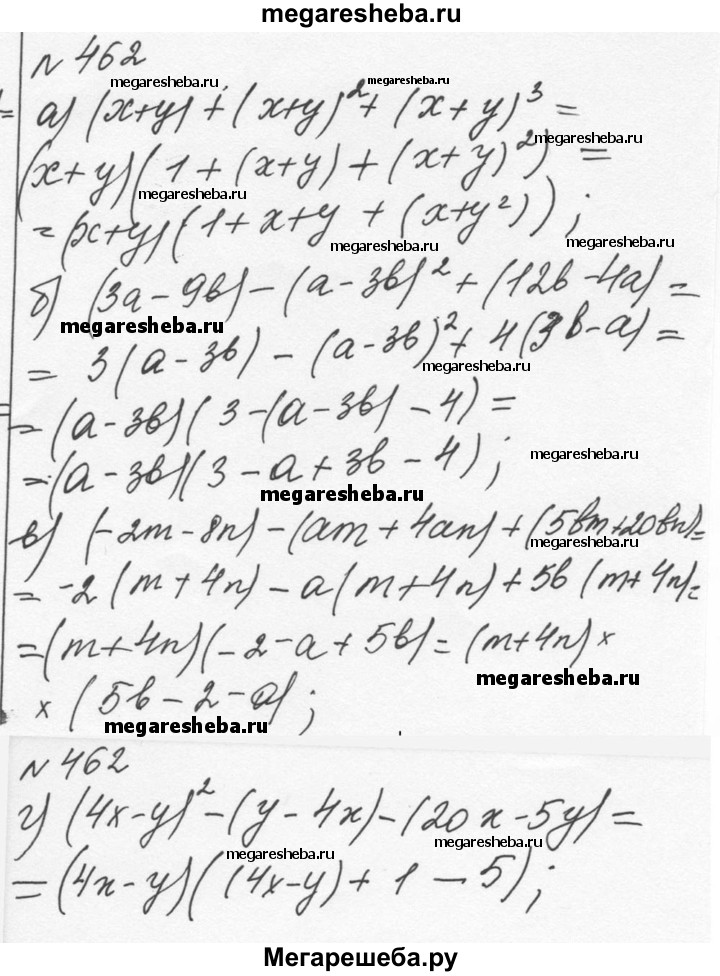 megaresheba.ru
№ 462
megaresheba.ru megaresheba.ru
= а) (x+y) + (x+y)² + (x+y)³ =
megaresheba.ru
(x+y)(1 + (x+y) + (x+y)²) =
megaresheba.ru
= (x+y)(1+x+y + (x+y²));
megaresheba.ru megaresheba.ru
б) (3a - 9b) - (a - 3b)² + (12b - 4a) =
megaresheba.ru
= 3(a - 3b) - (a - 3b)² + 4(3b - a) =
megaresheba.ru
= (a - 3b)(3 - (a - 3b) - 4) =
megaresheba.ru
= (a - 3b)(3 - a + 3b - 4);
megaresheba.ru
в) (-2m - 8n) - (am + 4an) + (5bm + 20bn) =
megaresheba.ru
= -2(m + 4n) - a(m + 4n) + 5b(m + 4n) =
= (m + 4n)(-2 - a + 5b) = (m + 4n) ×
megaresheba.ru
× (5b - 2 - a);
megaresheba.ru
№ 462
г) (4x - y)² - (y - 4x) - (20x - 5y) =
megaresheba.ru megaresheba.ru
= (4x - y)((4x - y) + 1 - 5);
Мегарешеба.ру